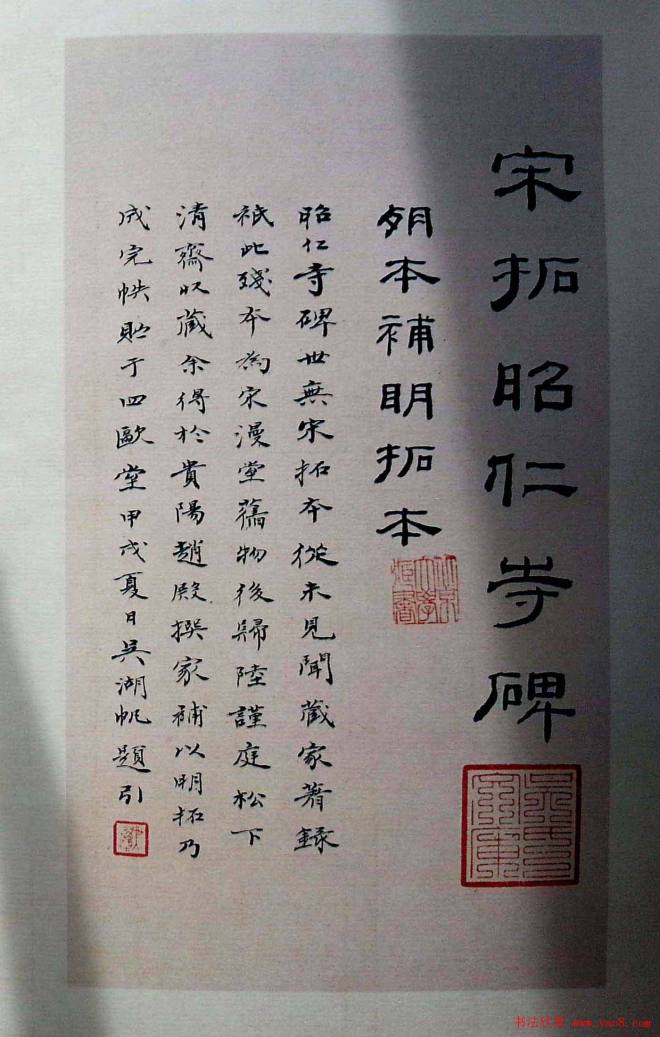 宋拓昭仁寺碑
本補明拓本
昭仁寺碑世無宋拓本從未見聞藏家著録
祇此殘本為宋漫堂舊物後歸陸謹庭松下
清齋収藏余得於貴陽趙殿撰家補以明拓乃
成完帙貯于四歐堂甲戌夏日吳湖帆題引
书法欣赏 www.yac8.com